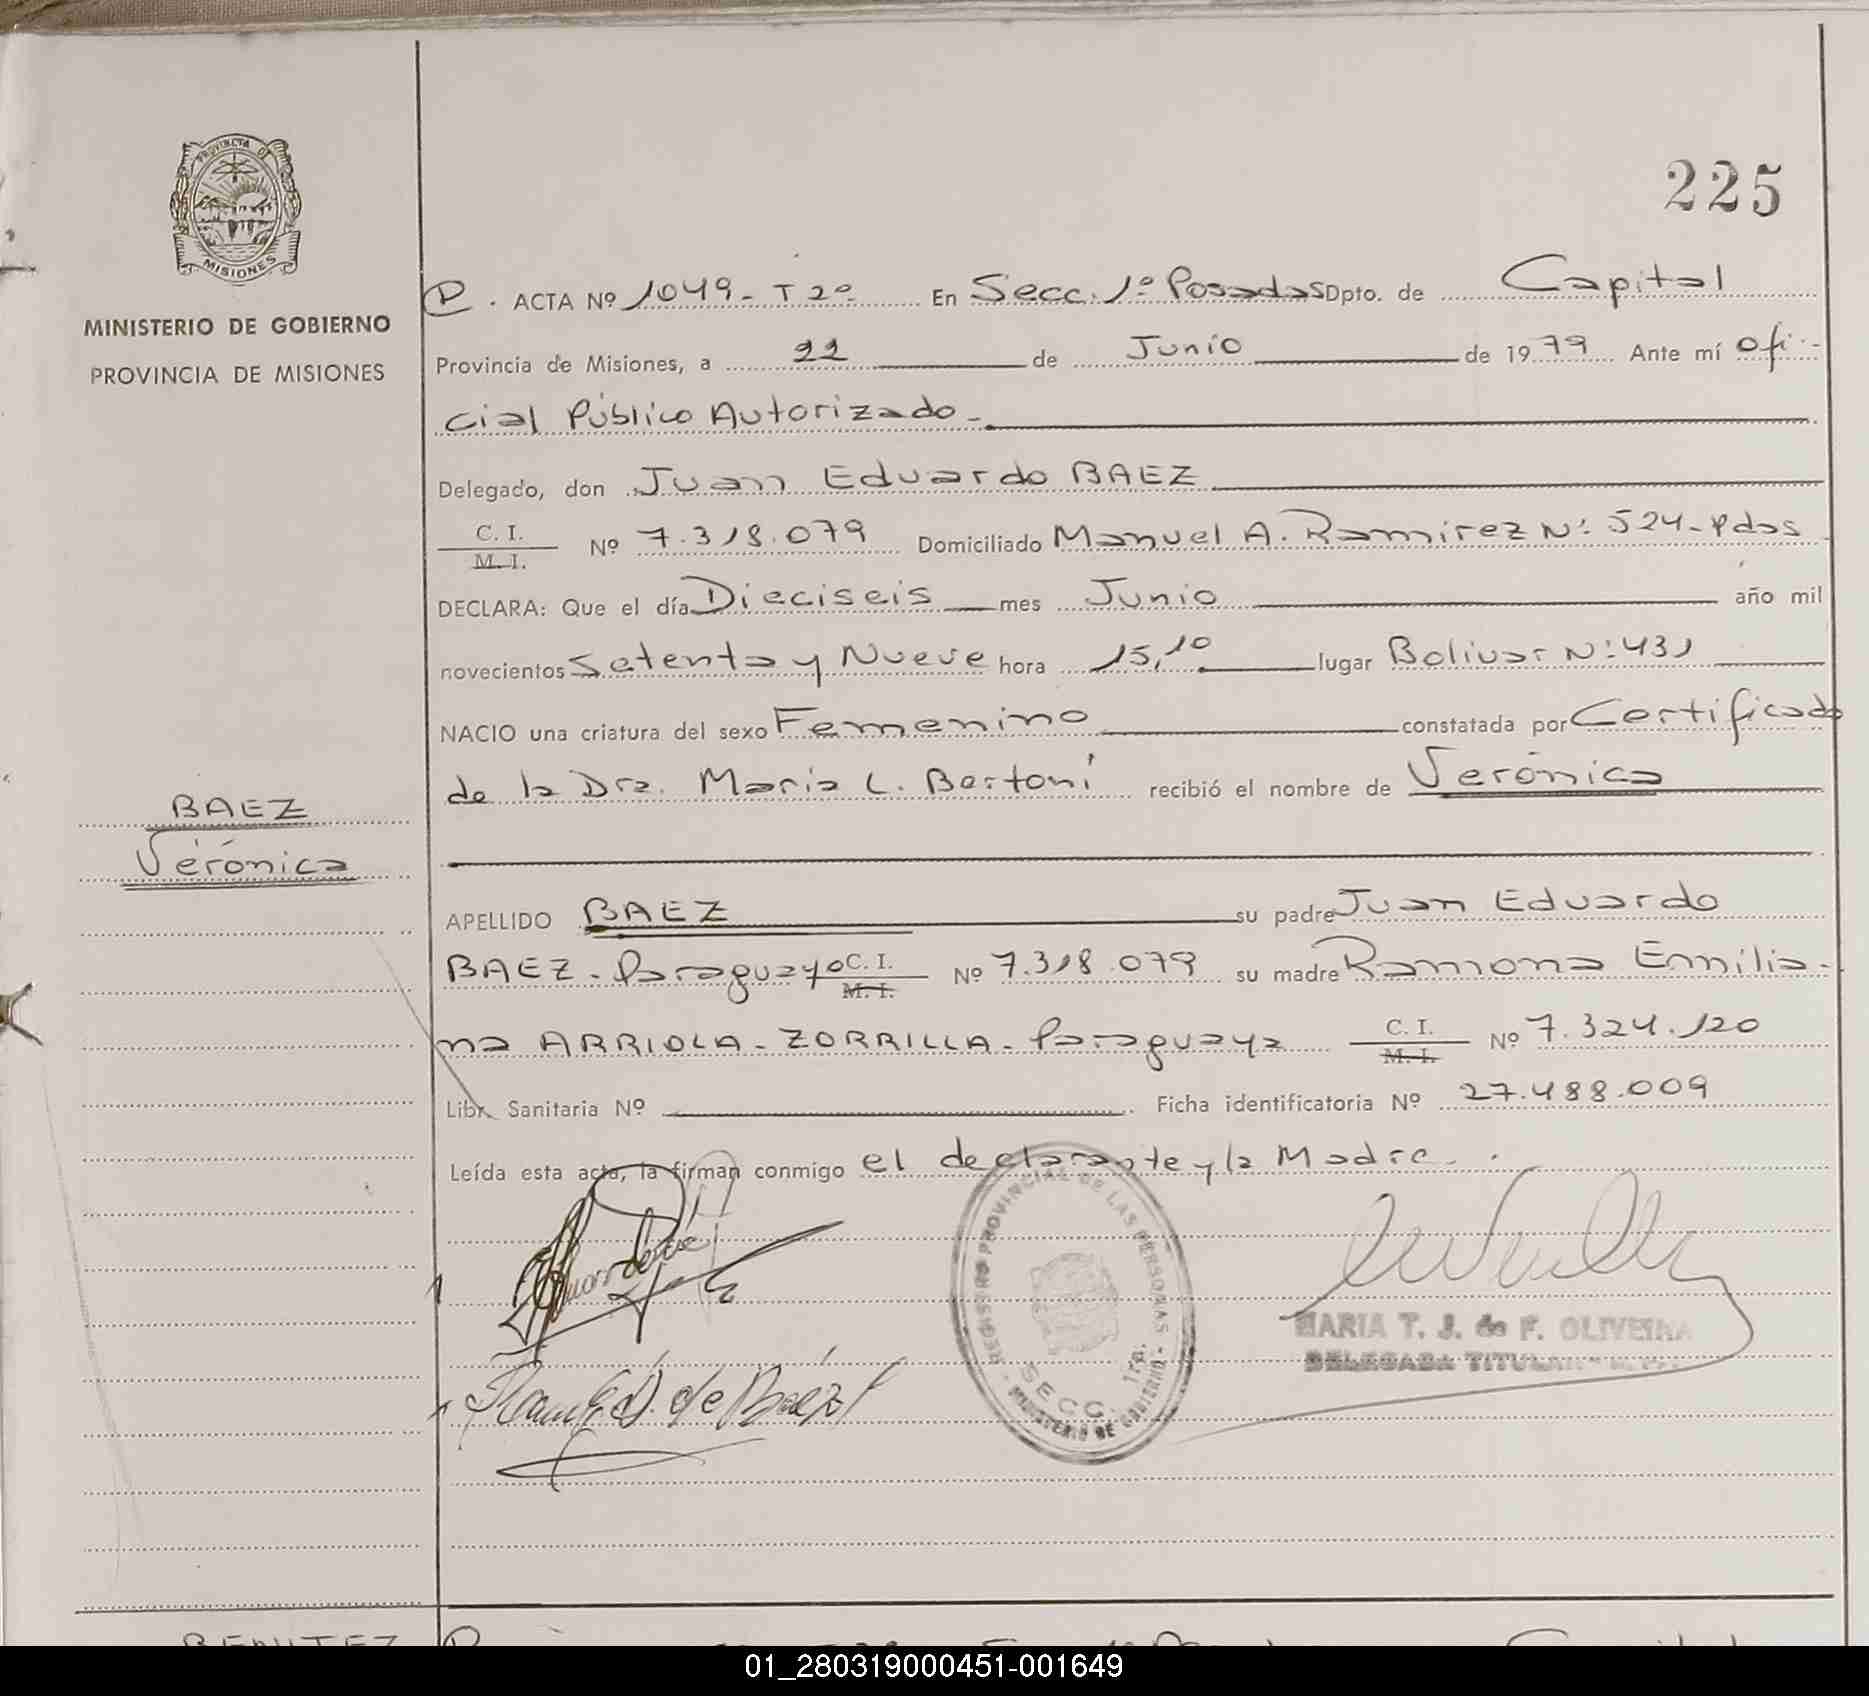 225
PROVINCIA DE
MISIONES
MINISTERIO DE GOBIERNO
PROVINCIA DE MISIONES
ACTA Nº 1049 - T 2º En Secc. 1º Posadas Dpto. de Capital
Provincia de Misiones, a 22 de Junio de 1979 Ante mí Ofi-
cial Público Autorizado -
Delegado, don Juan Eduardo BAEZ
C. I.
M. I. Nº 7.318.079 Domiciliado Manuel A. Ramirez Nº: 524 - Pdas
DECLARA: Que el día Dieciseis mes Junio año mil
novecientos Setenta y Nueve hora 15,10 lugar Bolivar Nº: 431
NACIO una criatura del sexo Femenino constatada por Certificado
de la Dra. Maria L. Bertoni recibió el nombre de Verónica
BAEZ
Verónica
APELLIDO BAEZ su padre Juan Eduardo
BAEZ - Paraguayo C. I.
M. I. Nº 7.318.079 su madre Ramona Emilia-
na ARRIOLA - ZORRILLA - Paraguaya C. I.
M. I. Nº 7.324.120
Libr. Sanitaria Nº Ficha identificatoria Nº 27.488.009
Leída esta acta, la firman conmigo el declarante y la Madre.
REGISTRO PROVINCIAL DE LAS PERSONAS
SECC. 1ra.
MINISTERIO DE GOBIERNO
MARIA T. J. de F. OLIVEIRA
DELEGADA TITULAR
de Báez
BENITEZ
01_280319000451-001649